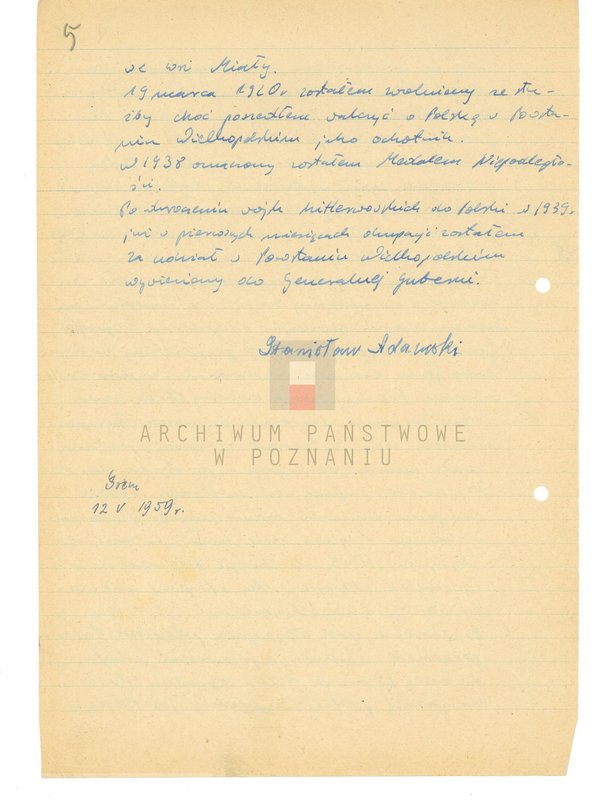 5
we wsi Miały.
19 marca 1920r zostałem zwolniony ze słu-
żby choć poszedłem walczyć o Polskę w Powsta-
niu Wielkopolskim jako ochotnik.
w 1938 oznaczony zostałem Medalem Niepodległo-
ści.
Po wkroczeniu wojsk hitlerowskich do Polski w 1939r.
już w pierwszych miesiącach okupacji zostałem
za udział w Powstaniu Wielkopolskim
wywieziony do Generalnej Guberni.
Stanisław Adamski
ARCHIWUM PAŃSTWOWE
W POZNANIU
12 V 1959r.